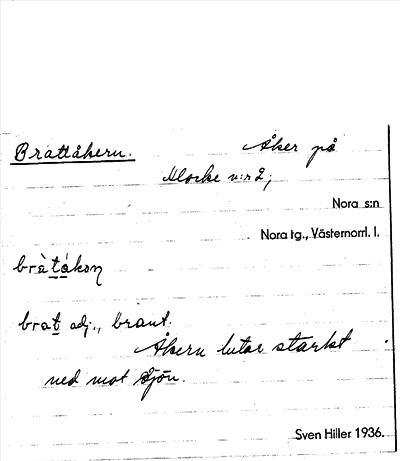 Brattåkern. Åker på
Klocke n:r 2,
Nora s:n
Nora tg., Västernorrl. l.
bràtåkɔn
brat adj., brant.
Åkern lutar starkt
ned mot sjön.
Sven Hiller 1936.